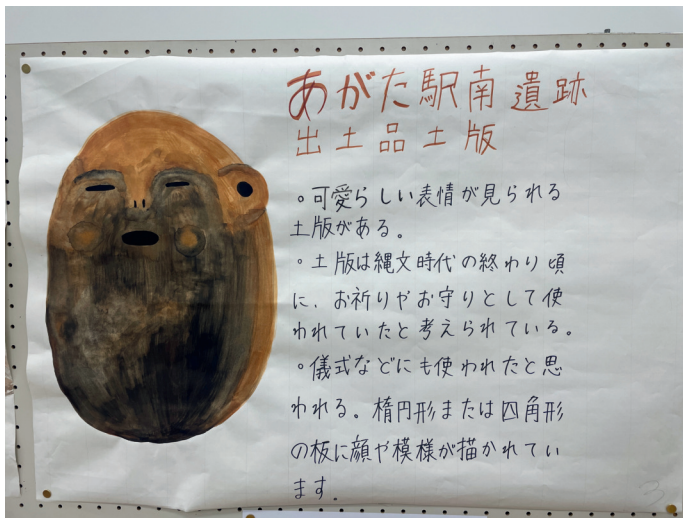 あがた駅南遺跡
出土品土版
。可愛らしい表情が見られる
土版がある。
。土版は縄文時代の終わり頃
に、お祈りやお守りとして使
われていたと考えられている。
。儀式などにも使われたと思
われる。楕円形または四角形
の板に顔や模様が描かれてい
ます。
3